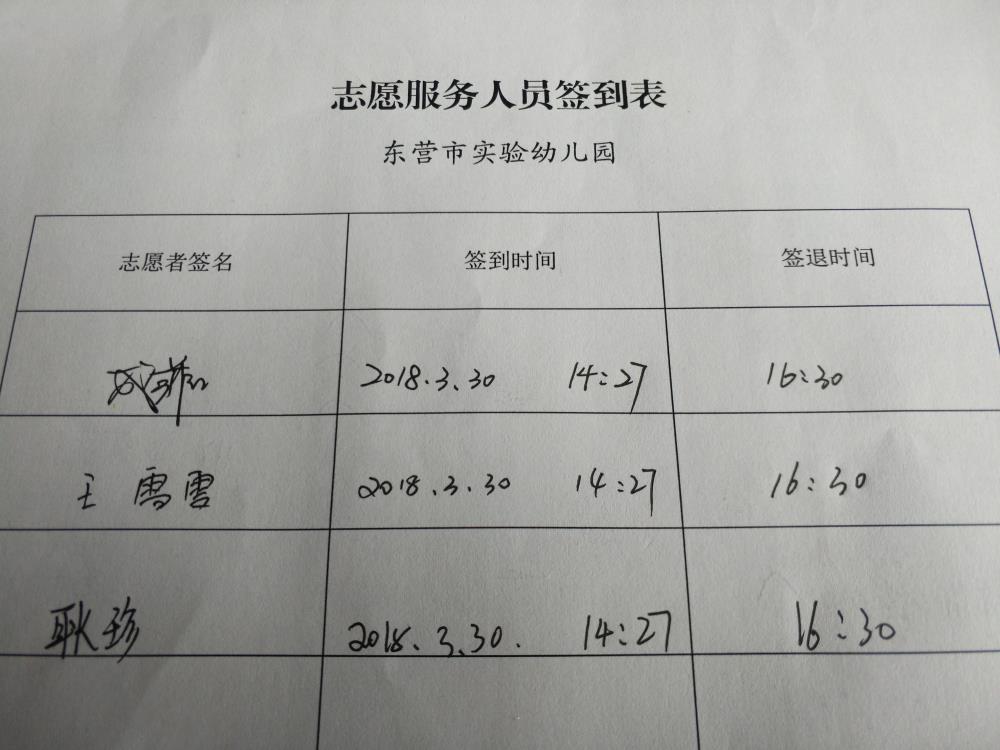 志愿服务人员签到表
东营市实验幼儿园
志愿者签名 签到时间 签退时间
2018.3.30 14:27 16:30
王雪雪 2018.3.30 14:27 16:30
耿珍 2018.3.30. 14:27 16:30